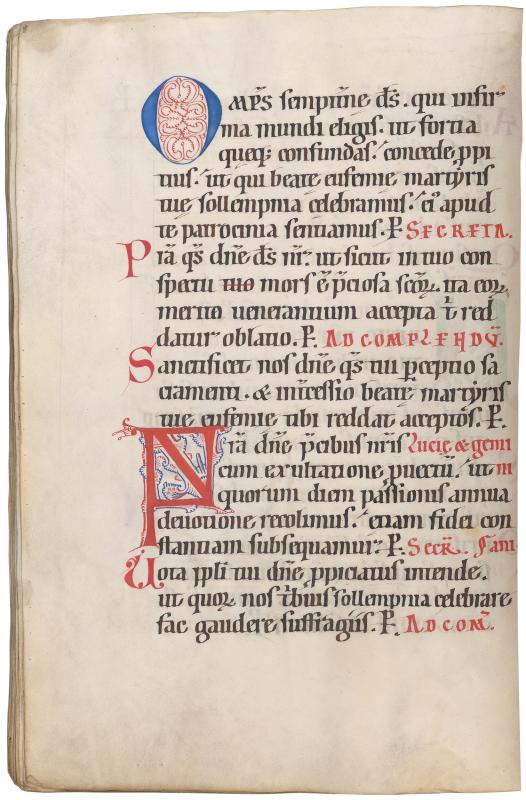 OMP̅S sempit̅ne d̅s. qui infir
ma mundi eligis. ut fortia
queq; confundas. concede, ppi
tius. ut qui beate eufemie martyris
tue sollempnia celebramus. ei᷒ apud
te patrocinia sentiamus. P̅. SECRETA.
Prä q̅s dn̅e d̅s n̅r. ut sicut in tuo con
spectu tuo mors e̅ p̅ciosa sc̅oꝝ. ita eoꝝ
merito uenerantium accepta t̅ red
datur oblatio. P̅. AD COMPLEHDV̅.
Sanctificet nos dn̅e q̅s tui p̅ceptio sa
cramenti. & int̅cessio beate martyris
tue eufemie tibi reddat accept᷒os. P̅.
Nr̅a dn̅e p̅cibus nr̅is Lucie & gemi
cum exultatione, puectu̅. ut ni
quorum diem passionis annua
deuotione recolimus. etiam fidei con
stantiam subsequamur. P̅. Secr̅. sani
Uota ppl̅i tui dn̅e, ppiciatus intende.
ut quoꝝ nos t̅buis sollempnia celebrare
fac gaudere suffragiis. P̅. AD COM̅.